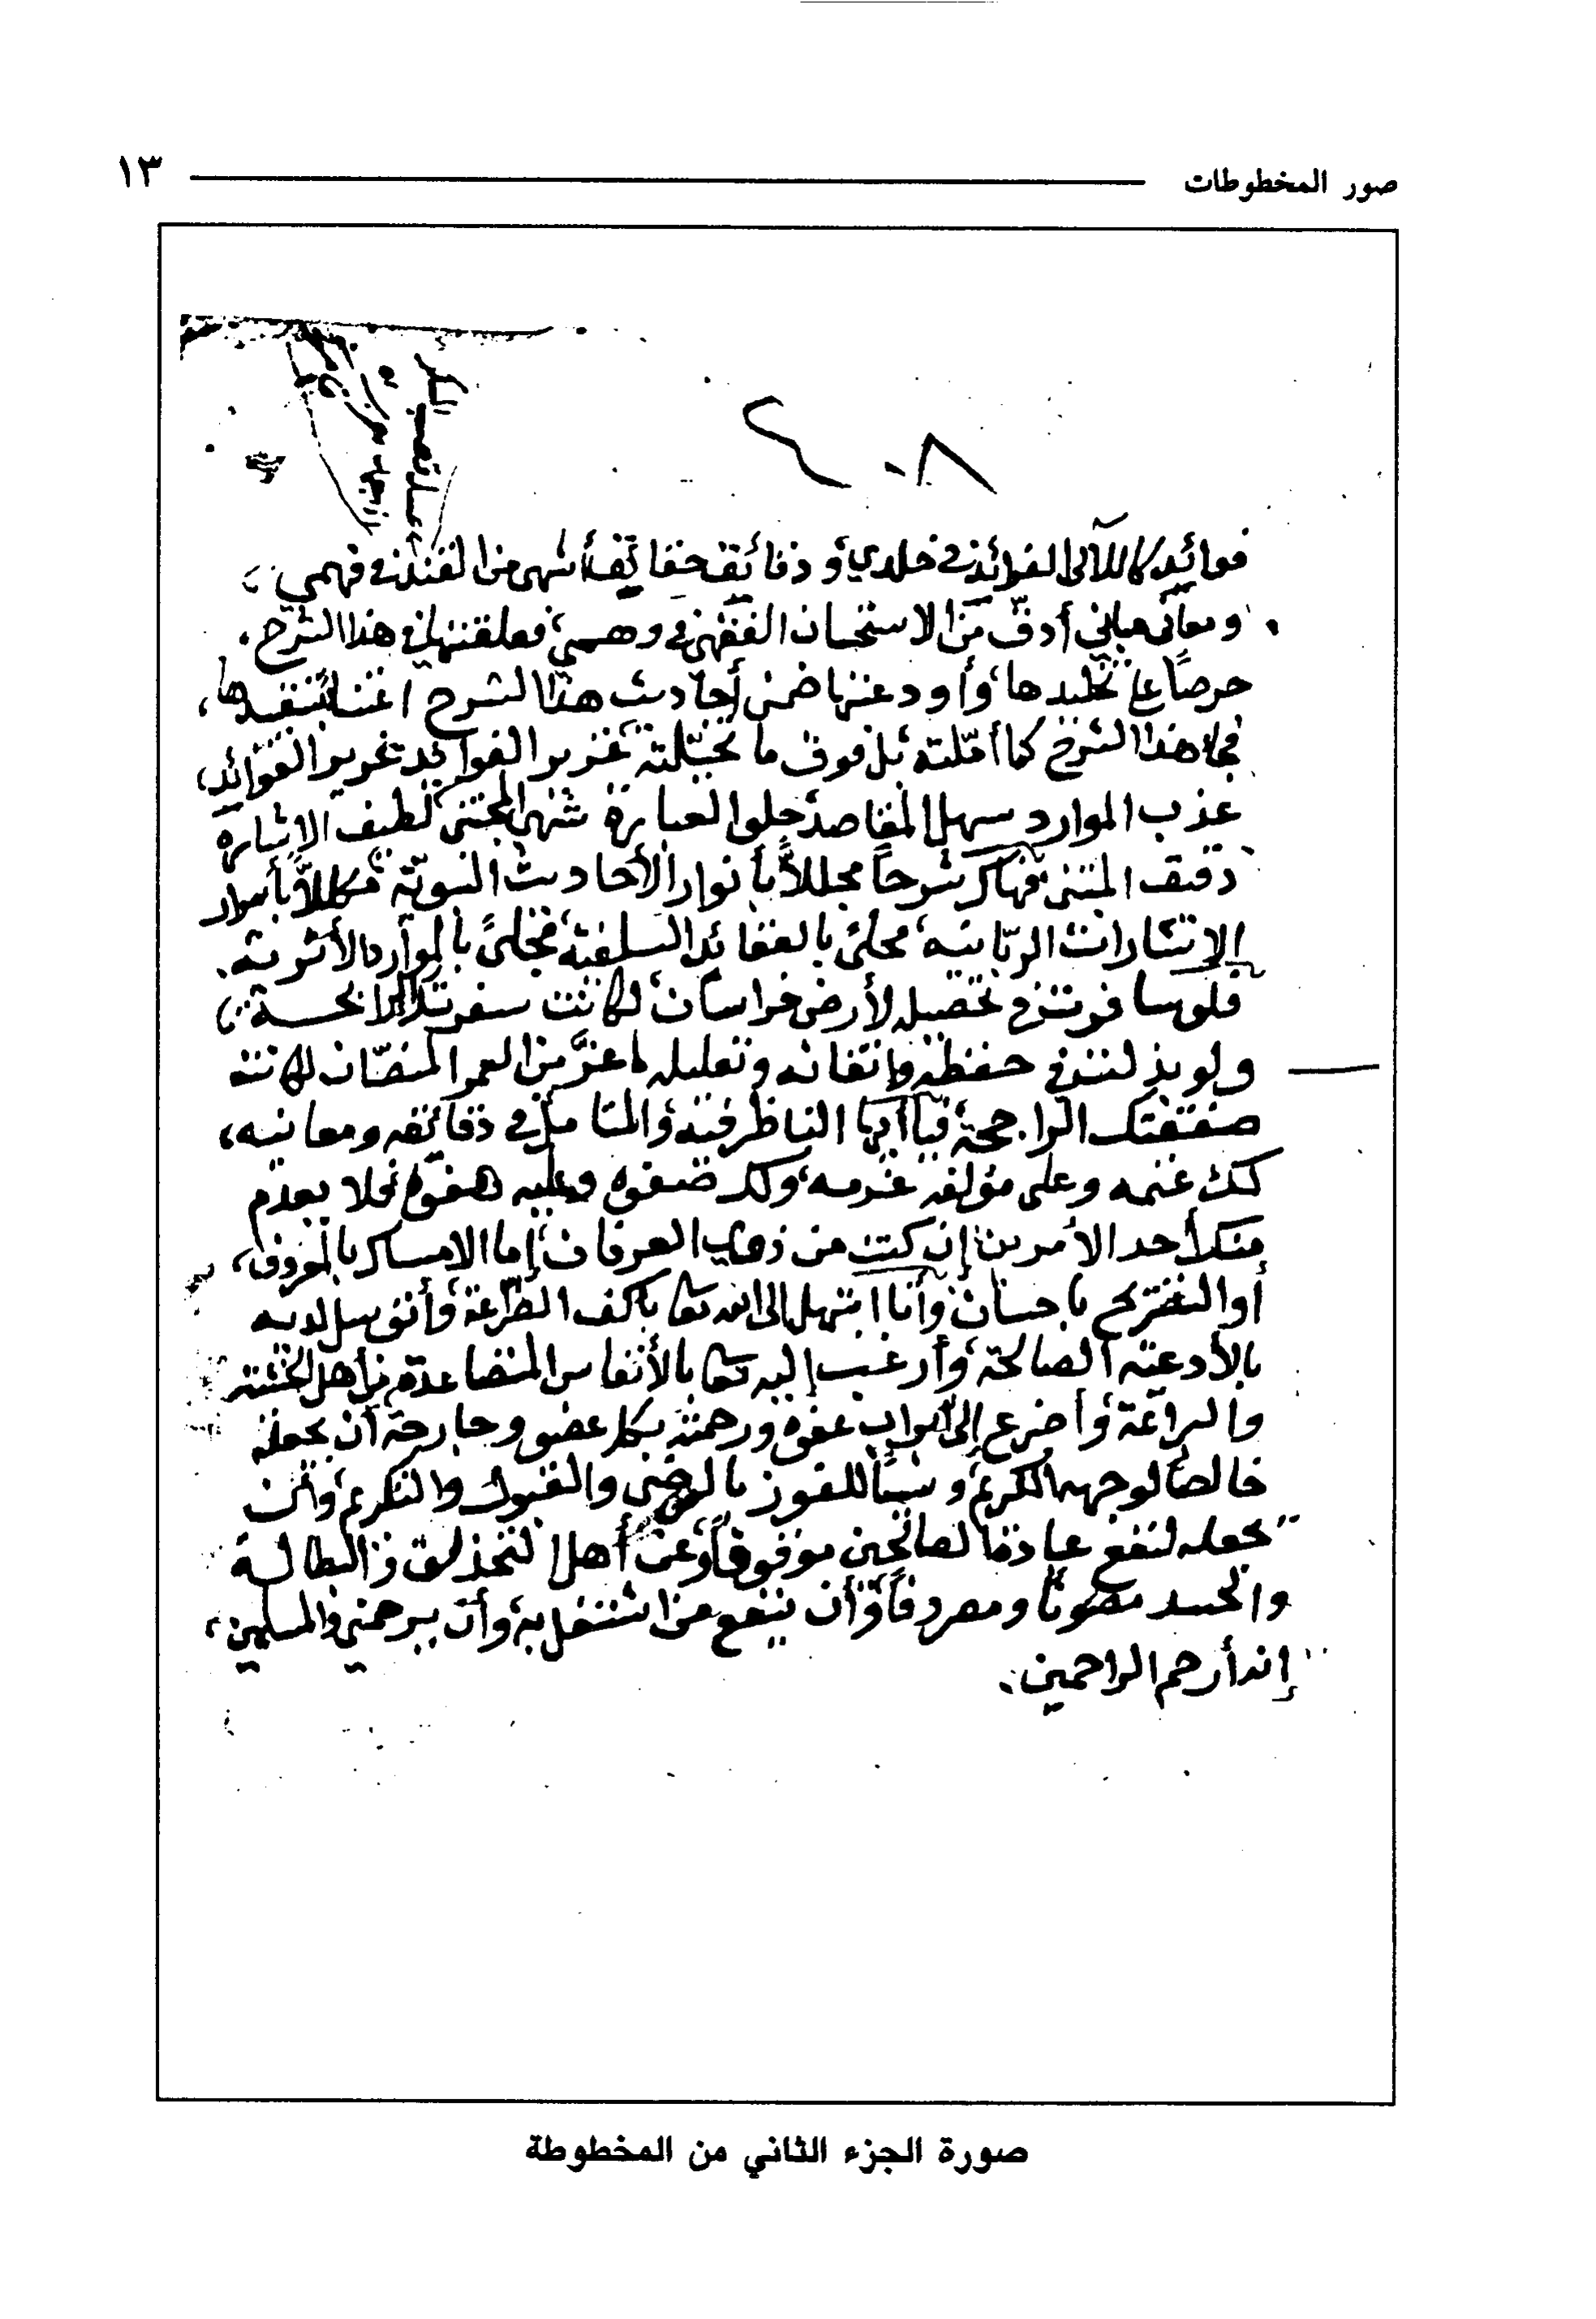 صور المخطوطات ١٣
فوائد كاللآلئ الفرائد في خلدي، ودقائق حقائق أشهى من القند في فهمي،
ومعاني مباني أدق من الاستحسان الفقهي في وهمي، فعلقتها في هذا الشرح
حرصاً على تخليدها، وأودعتها ضمن أحاديث هذا الشرح اعتناءً بتقييدها،
فجاء هذا الشرح كما أمّلته، بل فوق ما تخيّلته غزير الفوائد تحرير العوائد،
عذب الموارد سهل المقاصد، حلو العبارة شهي المجتنى لطيف الإشارة
دقيق المتنى، فهاك شرحاً مجللاً بأنوار الأحاديث النبوية، مكللاً بأسرار
الإشارات الربّانيّة، محلّىً بالعقائد السلفية، مجلّىً بالموارد الأثرية.
فلو سافرت في تحصيله لأرض خراسان، لكانت سفرتك الرابحة،
ولو بذلت في حفظه وإتقانه وتعليله أعزّ من العمر المنصّان لكانت
صفقتك الراجحة، فيا أيها الناظر فيه، والمتأمل في دقائقه ومعانيه،
لك غنمه وعلى مؤلفه غرمه، ولك صفوه وعليه هفوه، فلا يعدم
منك أحد الأمرين إن كنت من ذوي العرفان، إما الإمساك بالمعروف،
أو التسريح بإحسان، وأنا أبتهل إلى الله تعالى بأكف الضراعة، وأتوسل لديه
بالأدعية الصالحة، وأرغب إليه تعالى بالأنفاس المتصاعدة من أهل الخشية
والبراعة، وأضرع إلى أبواب عفوه ورحمته بكل عضو وجارحة أن يجعله
خالصاً لوجهه الكريم، وسبباً للفوز بالرضى والقبول والتكريم، وأن
يجعله لنفع عباده الصالحين موقوفاً، وعن أهل التحذلق والبطالة
والحسد مصوناً ومصروفاً، وأن ينفع من اشتغل به، وأن يرحمني والمسلمين،
إنه أرحم الراحمين.
صورة الجزء الثاني من المخطوطة